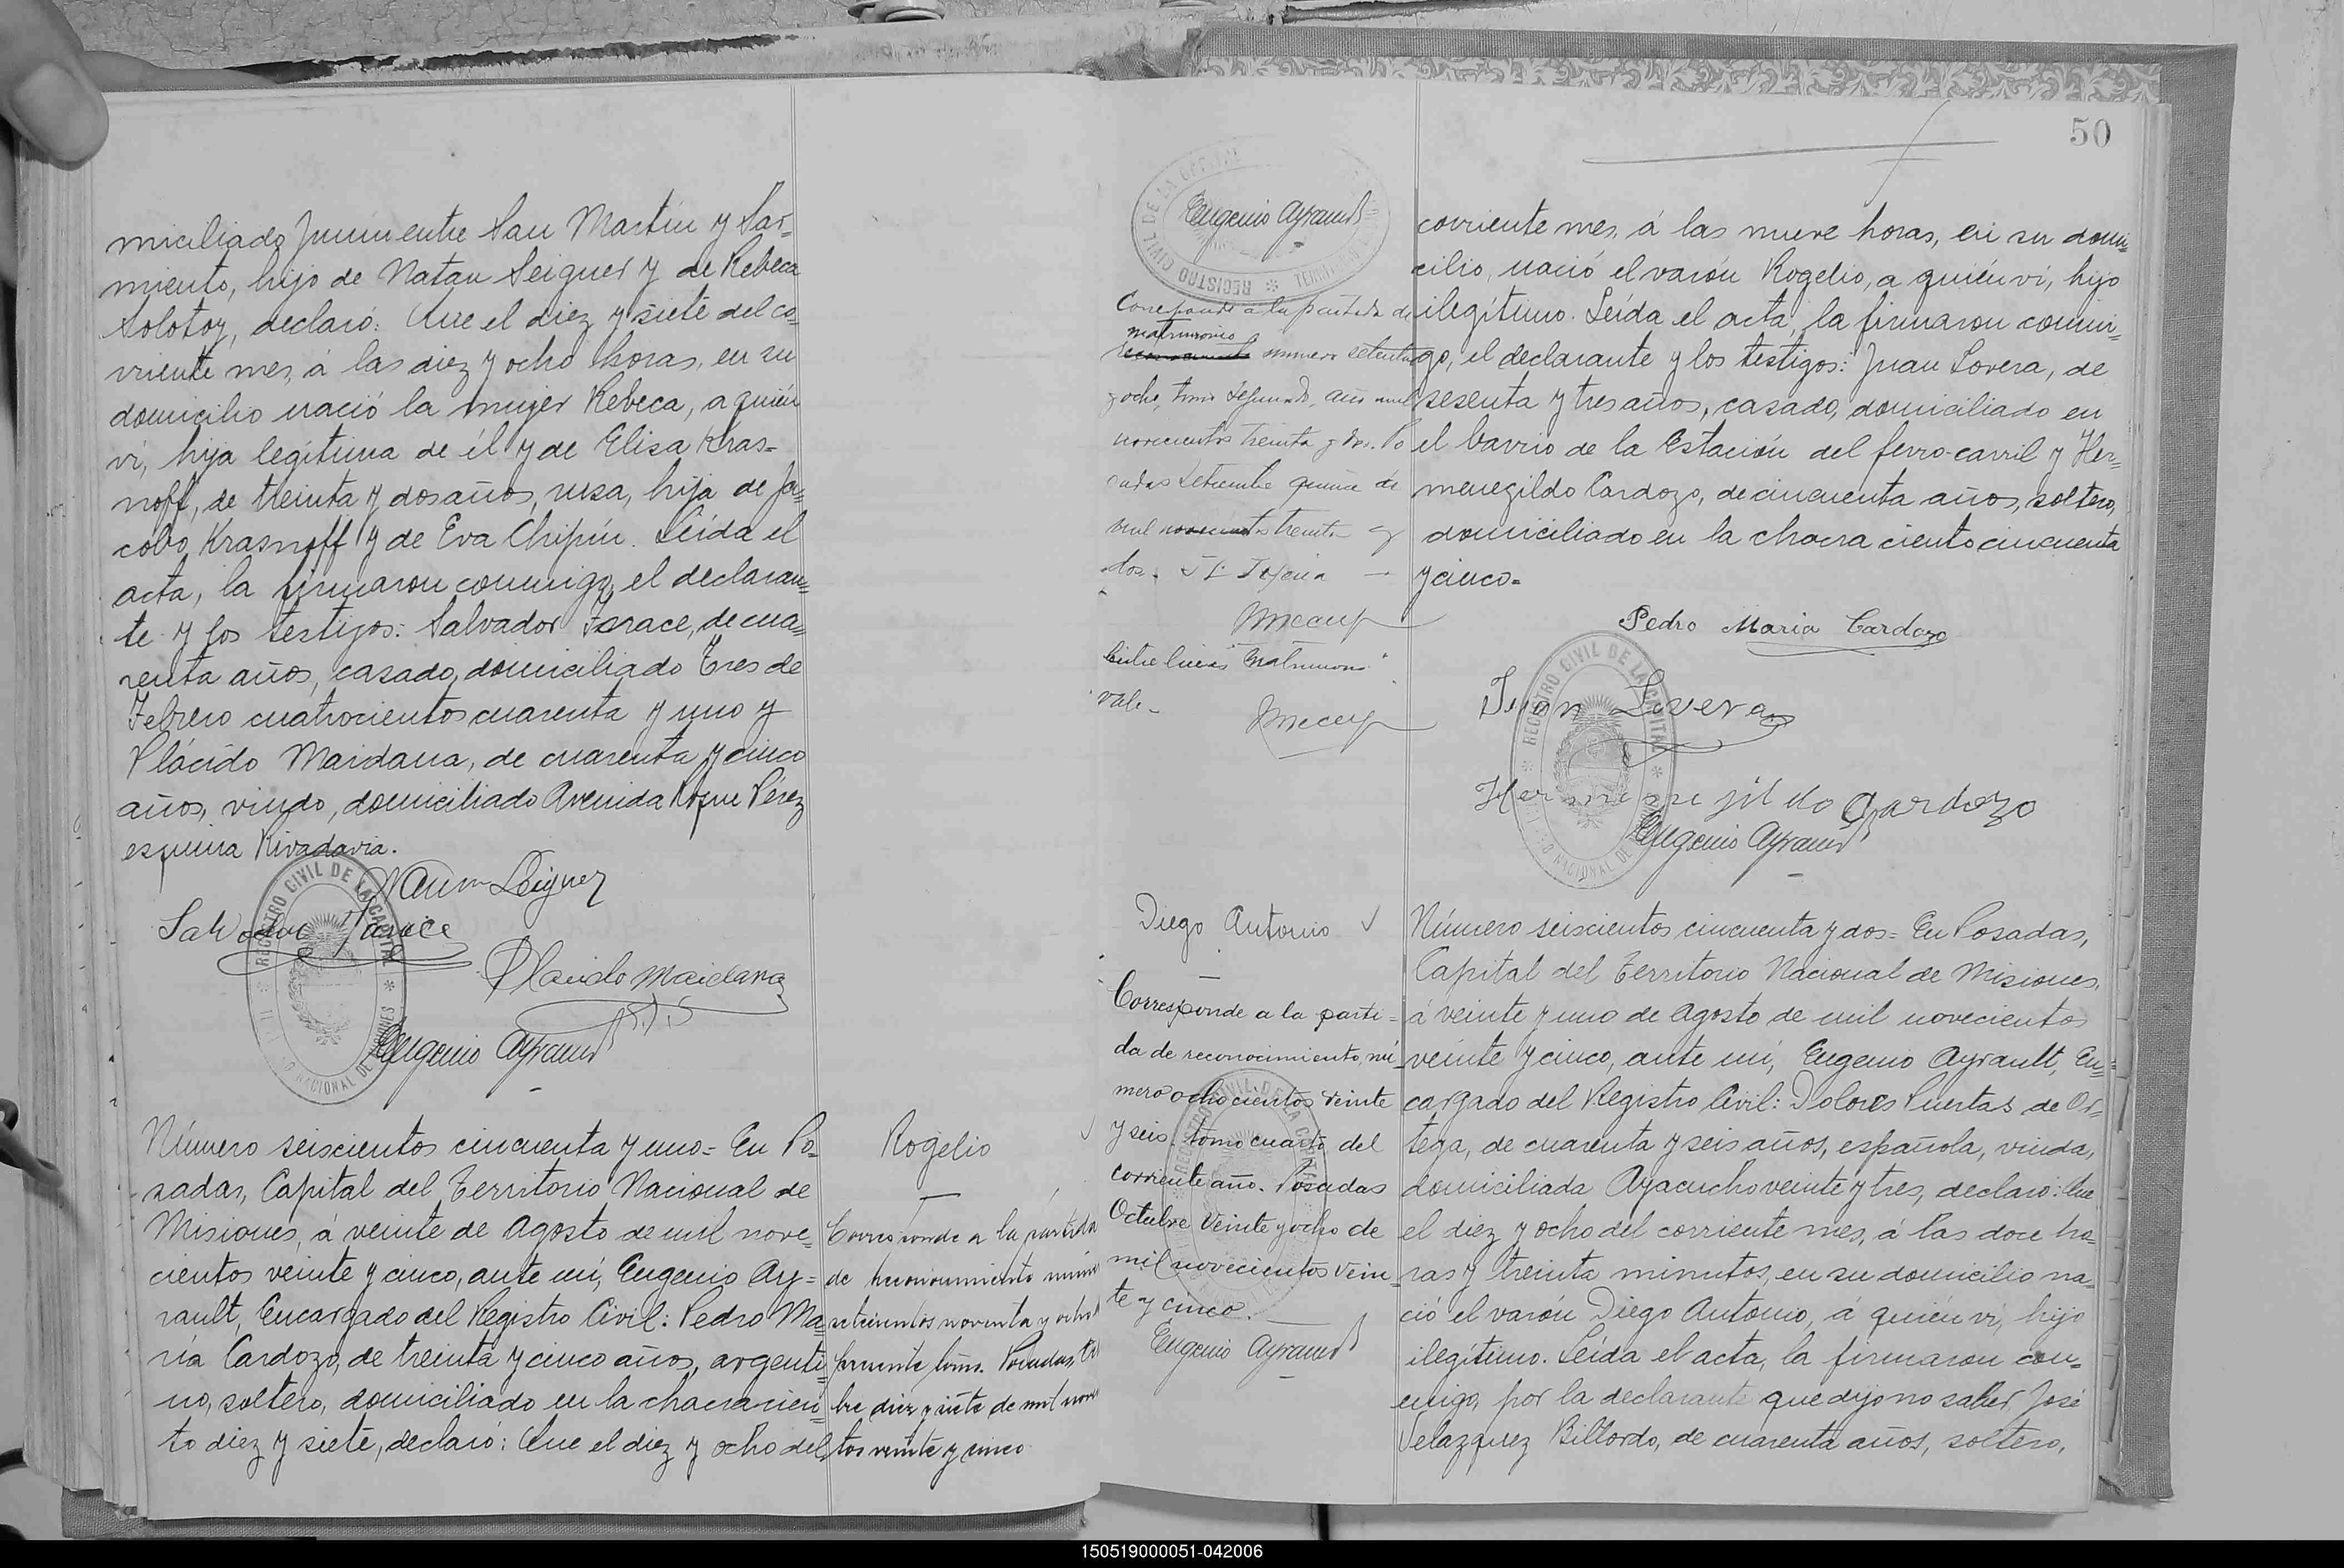 miciliado Junin entre San Martín y Sar=
miento, hijo de Natan Seigner y de Rebeca
Solotoy, declaró: Que el diez y siete del co=
rriente mes, á las diez y ocho horas, en su
domicilio nació la mujer Rebeca, a quién
vi, hija legítima de él y de Elisa Kras=
noff, de treinta y dos años, rusa, hija de Ja=
cobo Krasnoff y de Eva Chipin. Leída el
acta, la firmaron conmigo, el declaran=
te y los testigos: Salvador Farace, de cua=
renta años, casado, domiciliado Tres de
Febrero cuatrocientos cuarenta y uno y
Plácido Maidana, de cuarenta y cinco
años, viudo, domiciliado Avenida Roque Pérez
esquina Rivadavia.
Naum Seigner
Salvador Farace
Placido Maidana
Eugenio Ayrault
REGISTRO CIVIL DE LA CAPITAL
Número seiscientos cincuenta y uno= En Po=
sadas, Capital del Territorio Nacional de
Misiones, á veinte de Agosto de mil nove=
cientos veinte y cinco, ante mí, Eugenio Ay=
rault, Encargado del Registro Civil: Pedro Ma=
ría Cardozo, de treinta y cinco años, argenti=
no, soltero, domiciliado en la chacra cien=
to diez y siete, declaró: Que el diez y ocho del
Rogelio
Corresponde a la partida
de reconocimiento núme
setecientos noventa y ocho
presente tomo. Posadas,
bre diez y siete de mil nove
tos veinte y cinco
50
Eugenio Ayrault
Corresponde a la partida de
matrimonio
numero setenta
y ocho, tomo segundo, año mil
novecientos treinta y dos. Po
sadas Setiembre quince de
mil novecientos treinta y
dos.
Entre lineas "matrimonio"
vale-
corriente mes, á las nueve horas, en su domi=
cilio, nació el varón Rogelio, a quién vi, hijo
ilegítimo. Leída el acta, la firmaron conmi=
go, el declarante y los testigos: Juan Lovera, de
sesenta y tres años, casado, domiciliado en
el barrio de la Estación del ferro-carril y Her=
menegildo Cardozo, de cincuenta años, soltero,
domiciliado en la chacra ciento cincuenta
y cinco.
Pedro Maria Cardozo
Juan Lovera
Hermenejildo Cardozo
Eugenio Ayrault
REGISTRO CIVIL DE LA CAPITAL
Diego Antonio
Corresponde a la parti=
da de reconocimiento, nú
mero ochocientos veinte
y seis, tomo cuarto del
corriente año. Posadas
Octubre veinte y ocho de
mil novecientos vein
te y cinco.
Eugenio Ayrault
Número seiscientos cincuenta y dos= En Posadas,
Capital del Territorio Nacional de Misiones,
á veinte y uno de Agosto de mil novecientos
veinte y cinco, ante mí, Eugenio Ayrault, En=
cargado del Registro Civil: Dolores Puertas de Or=
tega, de cuarenta y seis años, española, viuda,
domiciliada Ayacucho veinte y tres, declaró: Que
el diez y ocho del corriente mes, á las doce ho=
ras y treinta minutos, en su domicilio na=
ció el varón Diego Antonio, á quién vi, hijo
ilegítimo. Leída el acta, la firmaron con=
migo, por la declarante que dijo no saber, José
Velazquez Billordo, de cuarenta años, soltero,
150519000051-042006